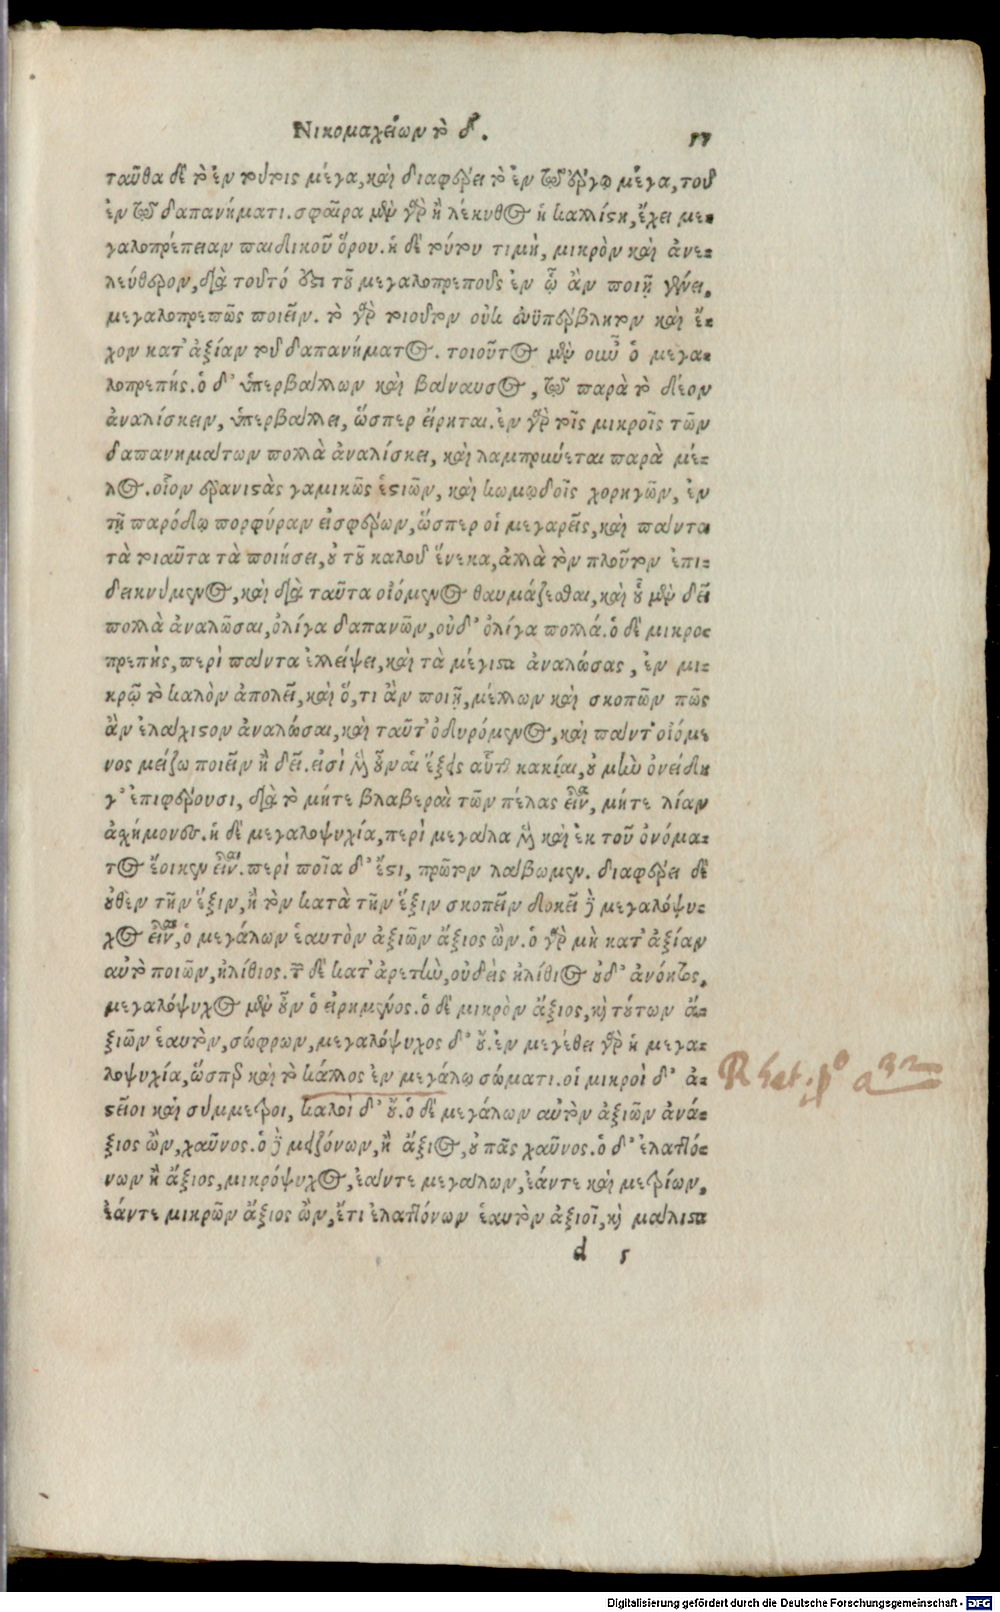 Νικομαχείων τὸ δ.
57
ταῦθα δὲ τὸ ἐν τούτοις μέγα, καὶ διαφέρει τὸ ἐν τῷ ἔργῳ μέγα, τοῦ
ἐν τῷ δαπανήματι. σφαῖρα μὲν γὰρ ἢ λήκυθος ἡ καλλίστη, ἔχει με-
γαλοπρέπειαν παιδικοῦ δώρου. ἡ δὲ τούτου τιμὴ, μικρὸν καὶ ἀνε-
λεύθερον, διὰ τοῦτό ἐστι τοῦ μεγαλοπρεποῦς ἐν ᾧ ἂν ποιῇ γένει,
μεγαλοπρεπῶς ποιεῖν. τὸ γὰρ τοιοῦτον οὐκ εὐϋπέρβλητον καὶ ἔ-
χον κατ' ἀξίαν τοῦ δαπανήματος. τοιοῦτος μὲν οὖν ὁ μεγα-
λοπρεπής. ὁ δ' ὑπερβάλλων καὶ βάναυσος, τῷ παρὰ τὸ δέον
ἀναλίσκειν, ὑπερβάλλει, ὥσπερ εἴρηται. ἐν γὰρ τοῖς μικροῖς τῶν
δαπανημάτων πολλὰ ἀναλίσκει, καὶ λαμπρύνεται παρὰ μέ-
λος. οἷον ἐρανιστὰς γαμικῶς ἑστιῶν, καὶ κωμῳδοῖς χορηγῶν, ἐν
τῇ παρόδῳ πορφύραν εἰσφέρων, ὥσπερ οἱ μεγαρεῖς, καὶ πάντα
τὰ τοιαῦτα τὰ ποιήσει, οὐ τοῦ καλοῦ ἕνεκα, ἀλλὰ τὸν πλοῦτον ἐπι-
δεικνύμενος, καὶ διὰ ταῦτα οἰόμενος θαυμάζεσθαι, καὶ οὗ μὲν δεῖ
πολλὰ ἀναλῶσαι, ὀλίγα δαπανῶν, οὐδ' ὀλίγα πολλά. ὁ δὲ μικρο-
πρεπὴς, περὶ πάντα ἐλλείψει, καὶ τὰ μέγιστα ἀναλώσας, ἐν μι-
κρῷ τὸ καλὸν ἀπολεῖ, καὶ ὅ, τι ἂν ποιῇ, μέλλων καὶ σκοπῶν πῶς
ἂν ἐλάχιστον ἀναλώσαι, καὶ ταῦτ' ὀδυρόμενος, καὶ πάντ' οἰόμε
νος μείζω ποιεῖν ἢ δεῖ. εἰσὶ μὲν οὖν αἱ ἕξεις αὗται κακίαι, οὐ μὴν ὀνείδη
γ' ἐπιφέρουσι, διὰ τὸ μήτε βλαβεραὶ τῶν πέλας εἶναι, μήτε λίαν
ἀσχήμονες. ἡ δὲ μεγαλοψυχία, περὶ μεγάλα μὲν καὶ ἐκ τοῦ ὀνόμα-
τος ἔοικεν εἶναι. περὶ ποῖα δ' ἔστι, πρῶτον λάβωμεν. διαφέρει δὲ
οὐθὲν τὴν ἕξιν, ἢ τὸν κατὰ τὴν ἕξιν σκοπεῖν δοκεῖ δὲ μεγαλόψυ-
χος εἶναι, ὁ μεγάλων ἑαυτὸν ἀξιῶν ἄξιος ὤν. ὁ γὰρ μὴ κατ' ἀξίαν
αὐτὸ ποιῶν, ἠλίθιος. τῶν δὲ κατ' ἀρετὴν, οὐδεὶς ἠλίθιος οὐδ' ἀνόητος.
μεγαλόψυχος μὲν οὖν ὁ εἰρημένος. ὁ δὲ μικρὸν ἄξιος, καὶ τούτων ἀ-
ξιῶν ἑαυτὸν, σώφρων, μεγαλόψυχος δ' οὔ. ἐν μεγέθει γὰρ ἡ μεγα-
λοψυχία, ὥσπερ καὶ τὸ κάλλος ἐν μεγάλῳ σώματι. οἱ μικροὶ δ' ἀ-
στεῖοι καὶ σύμμετροι, καλοὶ δ' οὔ. ὁ δὲ μεγάλων αὑτὸν ἀξιῶν ἀνά-
ξιος ὢν, χαῦνος. ὁ δὲ μειζόνων, ἢ ἄξιος, οὐ πᾶς χαῦνος. ὁ δ' ἐλαττό-
νων ἢ ἄξιος, μικρόψυχος, ἐάντε μεγάλων, ἐάντε καὶ μετρίων,
ἐάντε μικρῶν ἄξιος ὢν, ἔτι ἐλαττόνων ἑαυτὸν ἀξιοῖ, καὶ μάλιστα
d 5
Rhet. po a 32
Digitalisierung gefördert durch die Deutsche Forschungsgemeinschaft - DFG